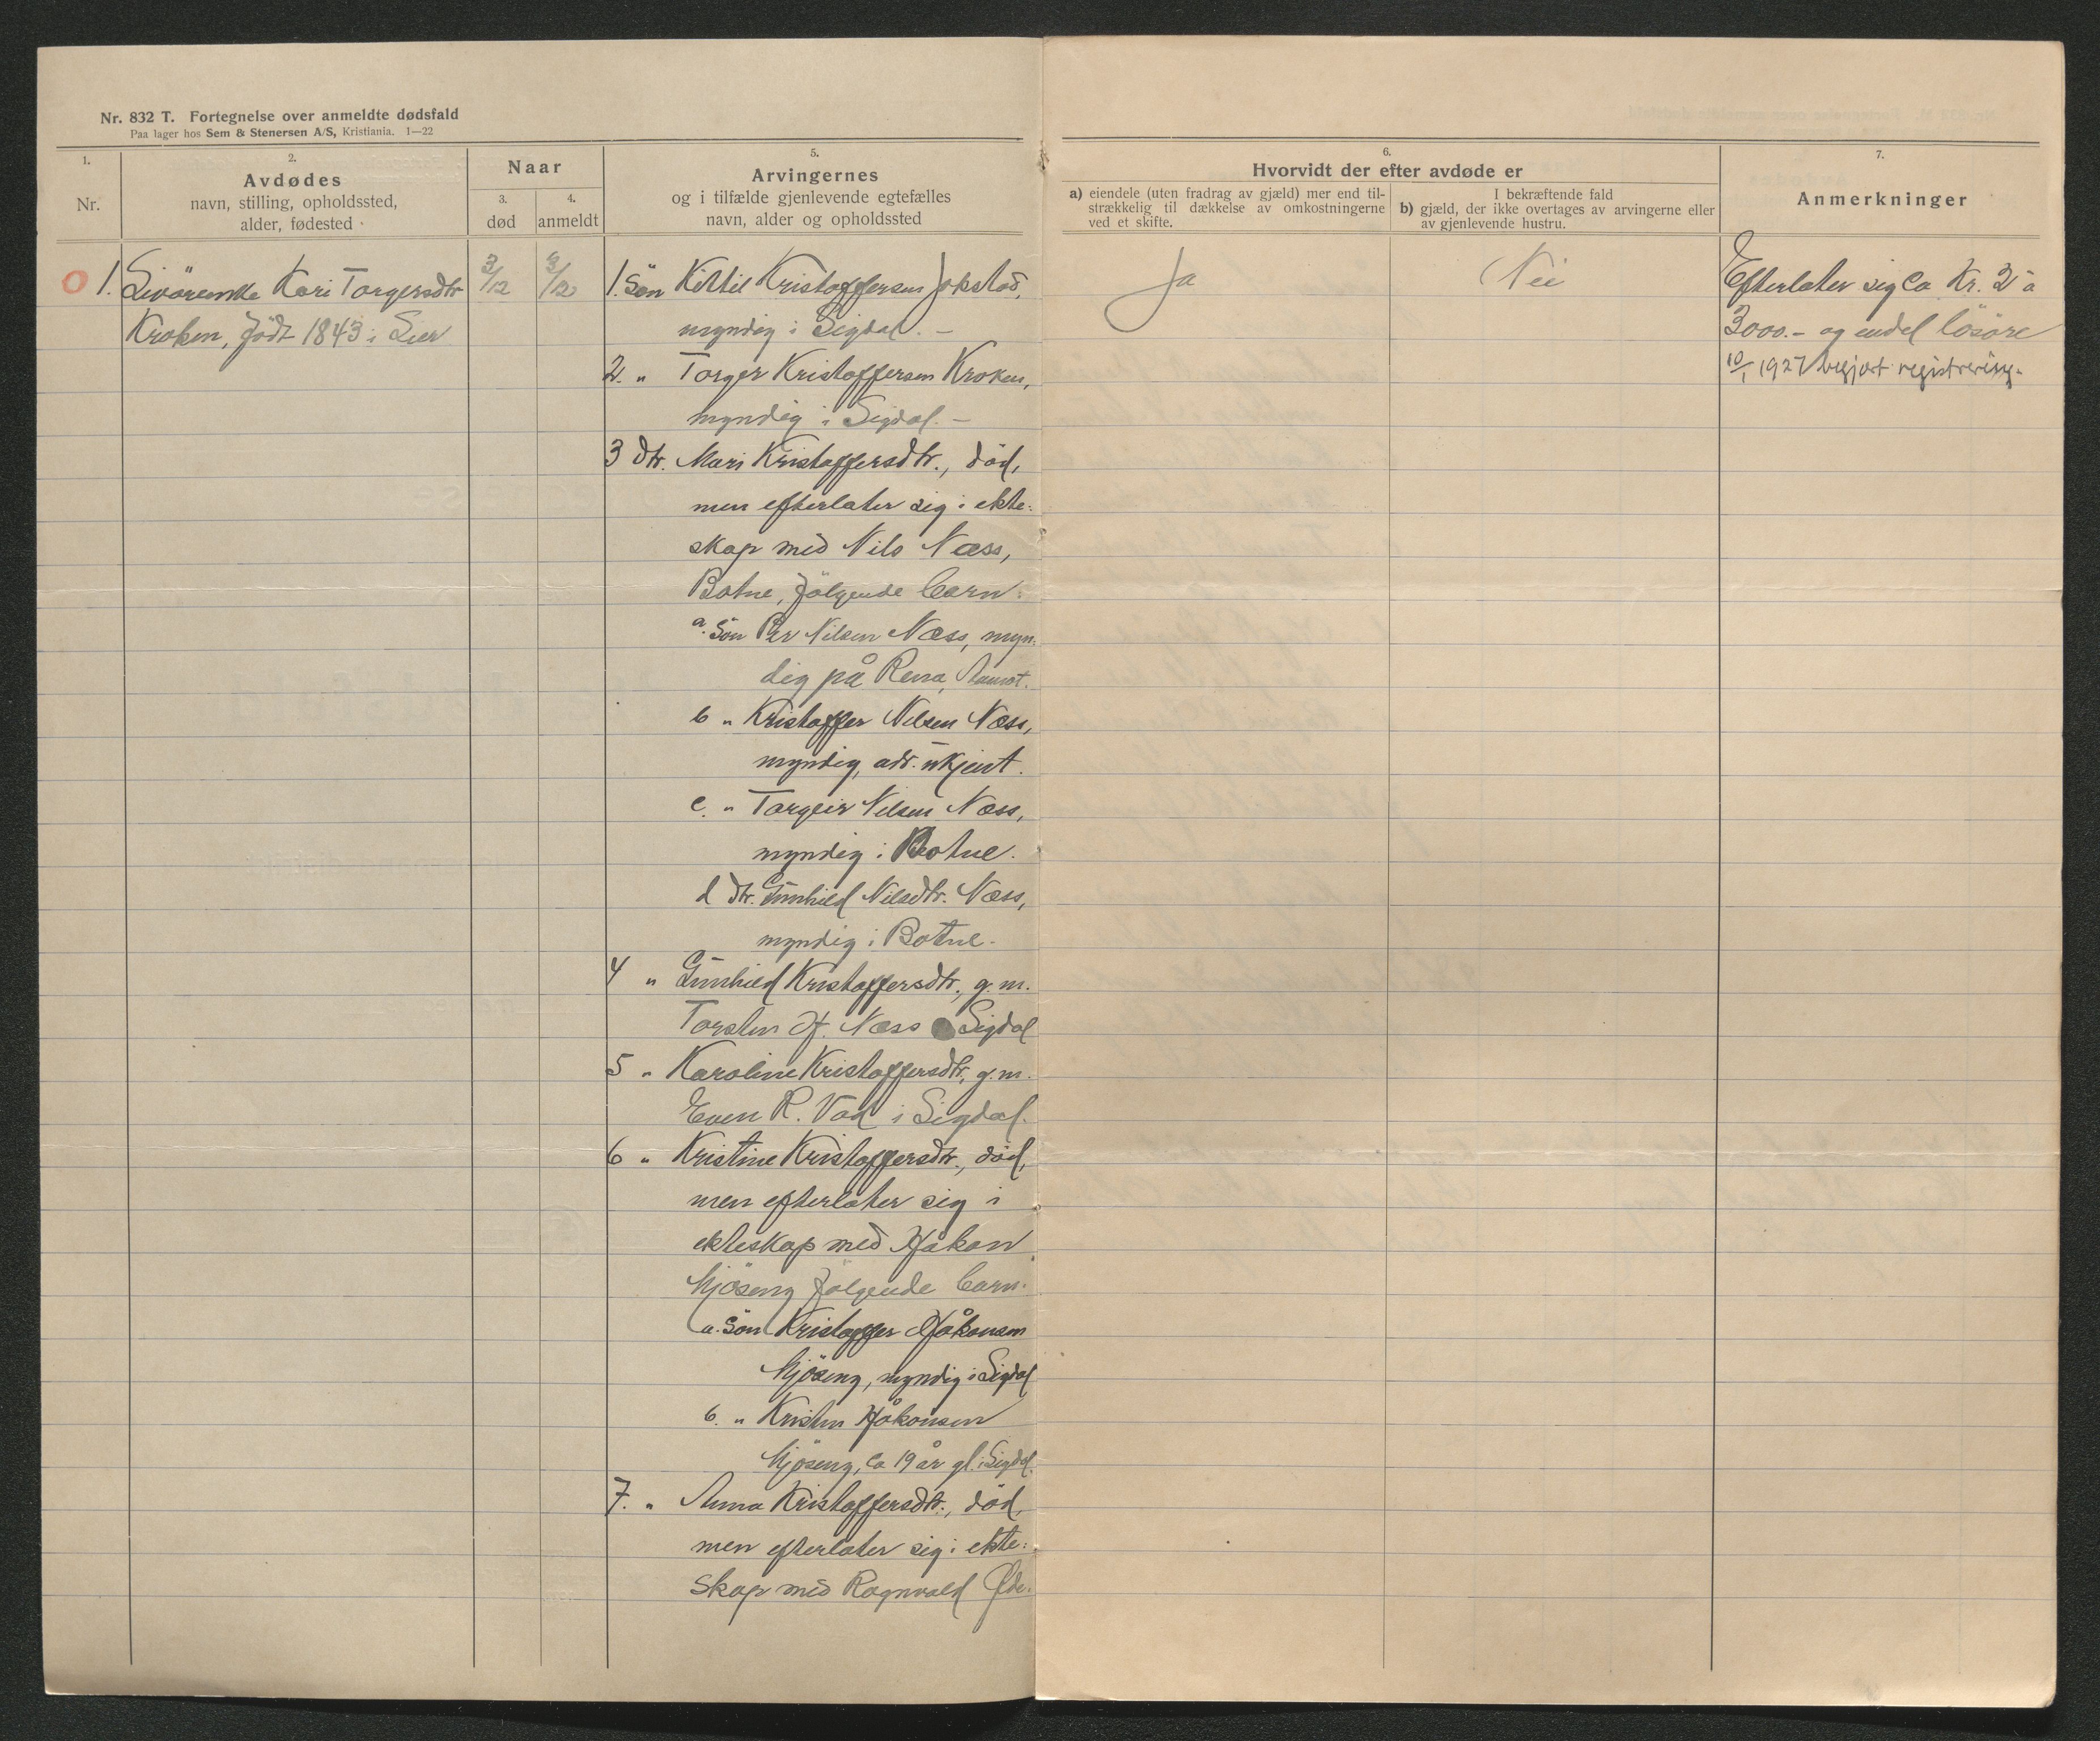 Nr. 832 T. Fortegnelse over anmeldte dødsfald
Paa lager hos Sem & Stenersen A/S, Kristiania. 1—22
1.
Nr.
2.
Avdødes
navn, stilling, opholdssted,
alder, fødested
Naar
3.
død
4.
anmeldt
5.
Arvingernes
og i tilfælde gjenlevende egtefælles
navn, alder og opholdssted
6.
Hvorvidt der efter avdøde er
a) eiendele (uten fradrag av gjæld) mer end til-
strækkelig til dækkelse av omkostningerne
ved et skifte.
I bekræftende fald
b) gjæld, der ikke overtages av arvingerne eller
av gjenlevende hustru.
7.
Anmerkninger
1. Livörenke Kari Torgersdtr
Kroken, født 1843 i Lier
3/12
9/12
1. Sön Kittil Kristoffersen Jokstad,
myndig i Sigdal. –
2. " Torger Kristoffersen Kroken,
myndig i Sigdal. –
3 dtr. Mari Kristoffersdtr., död,
men efterlater sig i ekte-
skap med Nils Næss,
Botne, følgende barn:
a. Sön Per Nilsen Næss, myn-
dig på Rena, Aamot.
b " Kristoffer Nilsen Næss,
myndig, adr. ukjent.
c. " Torgeir Nilsen Næss,
myndig i Botne.
d dtr. Gunhild Nilsdtr. Næss,
myndig i Botne.
4 " Gunhild Kristoffersdtr., g.m.
Torsten H. Næss Sigdal
5 " Karoline Kristoffersdtr., g.m.
Even R. Vad i Sigdal.
6 " Kristine Kristoffersdtr., död,
men efterlater sig i
ekteskap med Håkon
Mjöseng følgende barn:
a. Sön Kristoffer Håkonsen
Mjöseng, myndig i Sigdal
b. " Kristen Håkonsen
Mjöseng, ca 19 år gl. i Sigdal.
7. " Anna Kristoffersdtr., död,
men efterlater sig i ekte-
skap med Ragnvald Öde-
Ja
Nei
Efterlater sig ca Kr. 2 à
3000.- og endel lösöre
10/1 1927 begjært registrering.